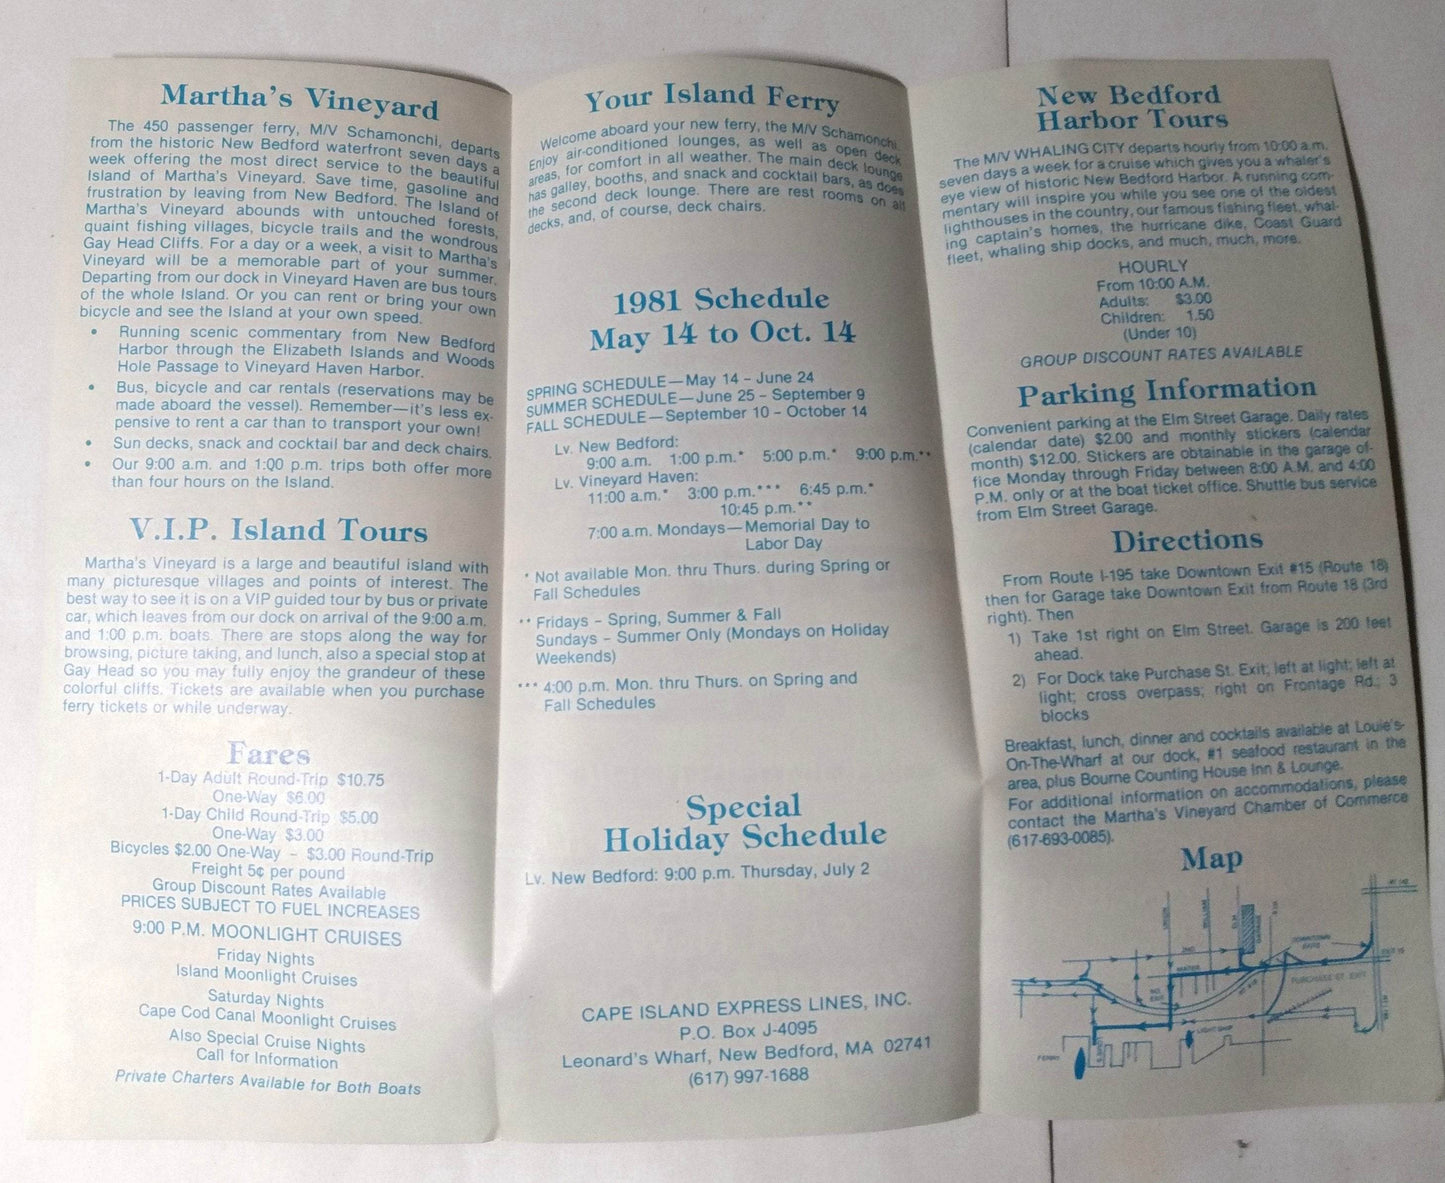 Martha's Vineyard
The 450 passenger ferry, M/V Schamonchi, departs
from the historic New Bedford waterfront seven days a
week offering the most direct service to the beautiful
Island of Martha's Vineyard. Save time, gasoline and
frustration by leaving from New Bedford. The Island of
Martha's Vineyard abounds with untouched forests,
quaint fishing villages, bicycle trails and the wondrous
Gay Head Cliffs. For a day or a week, a visit to Martha's
Vineyard will be a memorable part of your summer.
Departing from our dock in Vineyard Haven are bus tours
of the whole Island. Or you can rent or bring your own
bicycle and see the Island at your own speed.
• Running scenic commentary from New Bedford
Harbor through the Elizabeth Islands and Woods
Hole Passage to Vineyard Haven Harbor.
• Bus, bicycle and car rentals (reservations may be
made aboard the vessel). Remember—it's less ex-
pensive to rent a car than to transport your own!
• Sun decks, snack and cocktail bar and deck chairs.
• Our 9:00 a.m. and 1:00 p.m. trips both offer more
than four hours on the Island.
V.I.P. Island Tours
Martha's Vineyard is a large and beautiful island with
many picturesque villages and points of interest. The
best way to see it is on a VIP guided tour by bus or private
car, which leaves from our dock on arrival of the 9:00 a.m.
and 1:00 p.m. boats. There are stops along the way for
browsing, picture taking, and lunch, also a special stop at
Gay Head so you may fully enjoy the grandeur of these
colorful cliffs. Tickets are available when you purchase
ferry tickets or while underway.
Fares
1-Day Adult Round-Trip $10.75
One-Way $6.00
1-Day Child Round-Trip $5.00
One-Way $3.00
Bicycles $2.00 One-Way – $3.00 Round-Trip
Freight 5¢ per pound
Group Discount Rates Available
PRICES SUBJECT TO FUEL INCREASES
9:00 P.M. MOONLIGHT CRUISES
Friday Nights
Island Moonlight Cruises
Saturday Nights
Cape Cod Canal Moonlight Cruises
Also Special Cruise Nights
Call for Information
Private Charters Available for Both Boats
Your Island Ferry
Welcome aboard your new ferry, the M/V Schamonchi.
Enjoy air-conditioned lounges, as well as open deck
areas, for comfort in all weather. The main deck lounge
has galley, booths, and snack and cocktail bars, as does
the second deck lounge. There are rest rooms on all
decks, and, of course, deck chairs.
1981 Schedule
May 14 to Oct. 14
SPRING SCHEDULE—May 14 – June 24
SUMMER SCHEDULE—June 25 – September 9
FALL SCHEDULE—September 10 – October 14
Lv. New Bedford:
9:00 a.m. 1:00 p.m.* 5:00 p.m.* 9:00 p.m.**
Lv. Vineyard Haven:
11:00 a.m.* 3:00 p.m.*** 6:45 p.m.*
10:45 p.m.**
7:00 a.m. Mondays—Memorial Day to
Labor Day
* Not available Mon. thru Thurs. during Spring or
Fall Schedules
** Fridays – Spring, Summer & Fall
Sundays – Summer Only (Mondays on Holiday
Weekends)
*** 4:00 p.m. Mon. thru Thurs. on Spring and
Fall Schedules
Special
Holiday Schedule
Lv. New Bedford: 9:00 p.m. Thursday, July 2
CAPE ISLAND EXPRESS LINES, INC.
P.O. Box J-4095
Leonard's Wharf, New Bedford, MA 02741
(617) 997-1688
New Bedford
Harbor Tours
The M/V WHALING CITY departs hourly from 10:00 a.m.
seven days a week for a cruise which gives you a whaler's
eye view of historic New Bedford Harbor. A running com-
mentary will inspire you while you see one of the oldest
lighthouses in the country, our famous fishing fleet, whal-
ing captain's homes, the hurricane dike, Coast Guard
fleet, whaling ship docks, and much, much, more.
HOURLY
From 10:00 A.M.
Adults: $3.00
Children: 1.50
(Under 10)
GROUP DISCOUNT RATES AVAILABLE
Parking Information
Convenient parking at the Elm Street Garage. Daily rates
(calendar date) $2.00 and monthly stickers (calendar
month) $12.00. Stickers are obtainable in the garage of-
fice Monday through Friday between 8:00 A.M. and 4:00
P.M. only or at the boat ticket office. Shuttle bus service
from Elm Street Garage.
Directions
From Route I-195 take Downtown Exit #15 (Route 18)
then for Garage take Downtown Exit from Route 18 (3rd
right). Then
1) Take 1st right on Elm Street. Garage is 200 feet
ahead.
2) For Dock take Purchase St. Exit; left at light; left at
light; cross overpass; right on Frontage Rd.; 3
blocks
Breakfast, lunch, dinner and cocktails available at Louie's-
On-The-Wharf at our dock, #1 seafood restaurant in the
area, plus Bourne Counting House Inn & Lounge.
For additional information on accommodations, please
contact the Martha's Vineyard Chamber of Commerce
(617-693-0085).
Map
UNION
WILLIAM
ELM
GARAGE
2ND
WATER
DOWNTOWN
EXITS
PURCHASE ST. EXIT
EXIT 15
LIGHT SHIP
FERRY